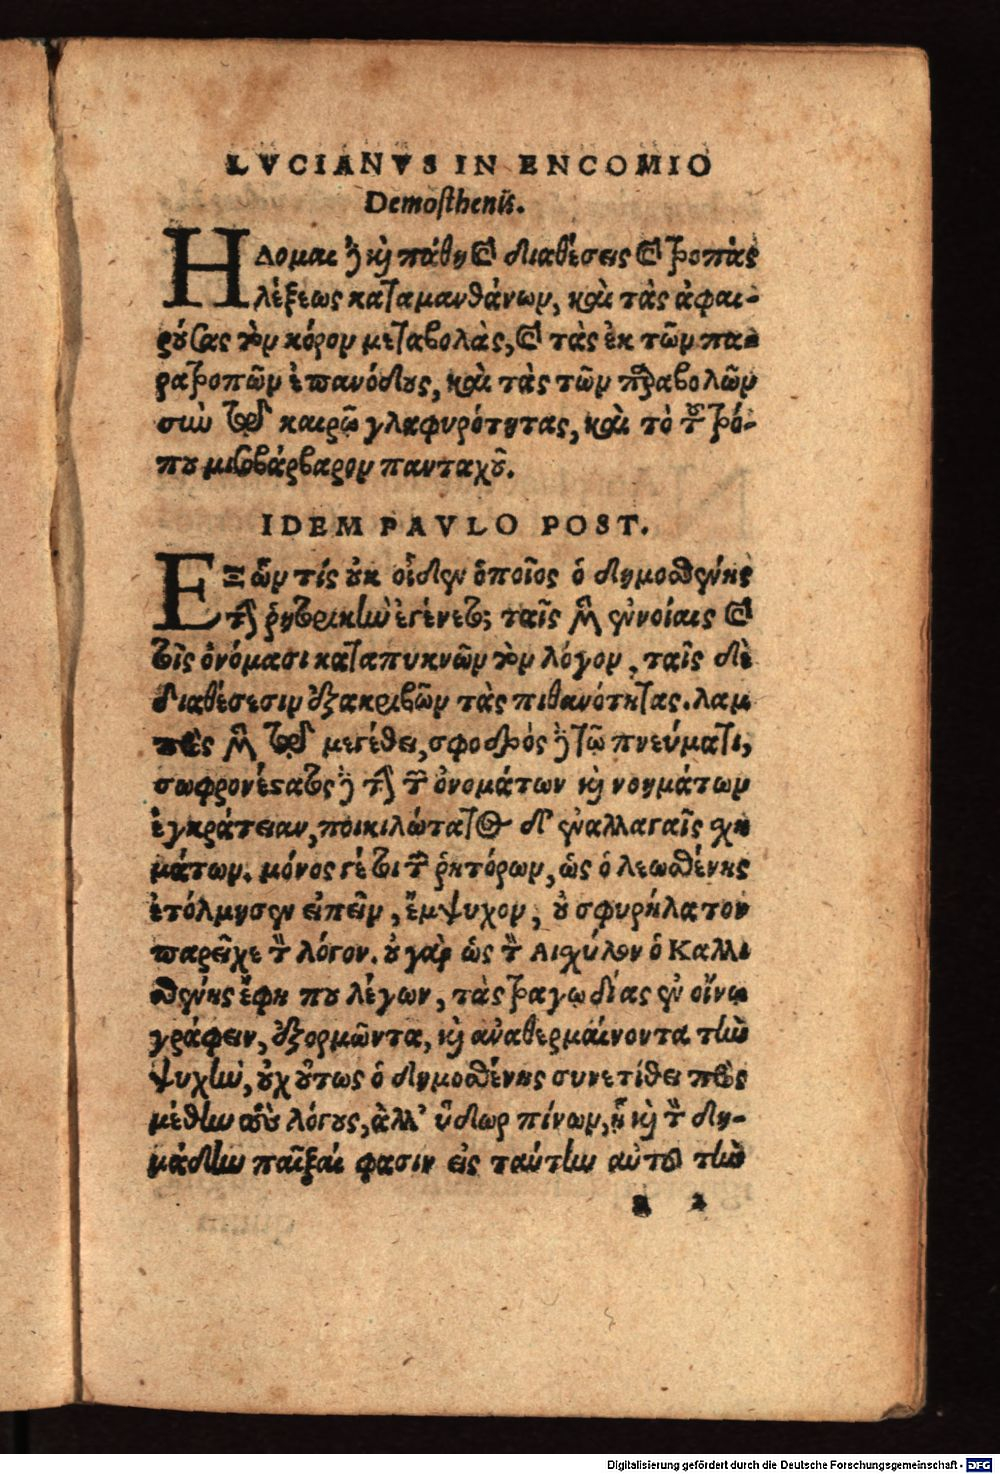 LVCIANVS IN ENCOMIO
Demosthenis.
Ηδομαι ἢ καὶ πάθη καὶ διαθέσεις καὶ τροπὰς
λέξεως καταμανθάνων, καὶ τὰς ἀφαι-
ρούσας τὸν κόρον μεταβολὰς, καὶ τὰς ἐκ τῶν πα-
ρατροπῶν ἐπανόδους, καὶ τὰς τῶν παραβολῶν
σὺν τῷ καιρῷ γλαφυρότητας, καὶ τὸ τοῦ τρό-
που μισοβάρβαρον πανταχοῦ.
IDEM PAVLO POST.
Εξ ὧν τίς οὐκ οἶδεν ὁποῖος ὁ δημοσθένης
τὴν ῥητορικὴν ἐγένετο; ταῖς μὲν ἐννοίαις καὶ
τοῖς ὀνόμασι καταπυκνῶν τὸν λόγον, ταῖς δὲ
διαθέσεσιν ἐξακριβῶν τὰς πιθανότητας. λαμ
πρὸς μὲν τῷ μεγέθει, σφοδρὸς δὲ τῷ πνεύματι,
σωφρονέστατος δὲ τὴν τῶν ὀνομάτων καὶ νοημάτων
ἐγκράτειαν, ποικιλώτατος δ' ἐναλλαγαῖς σχη
μάτων. μόνος γέ τοι τῶν ῥητόρων, ὡς ὁ λεωσθένης
ἐτόλμησεν εἰπεῖν, ἔμψυχον, οὐ σφυρήλατον
παρεῖχε τὸν λόγον. οὐ γὰρ ὡς τὸν Αισχύλον ὁ Καλλι
σθένης ἔφη που λέγων, τὰς τραγῳδίας ἐν οἴνῳ
γράφειν, ἐξορμῶντα, καὶ ἀναθερμαίνοντα τὴν
ψυχὴν, οὐχ οὕτως ὁ δημοσθένης συνετίθει πρὸς
μέθην τοὺς λόγους, ἀλλ' ὕδωρ πίνων, ᾗ καὶ τὸν δη-
μάδην παῖξαί φασιν εἰς ταύτην αὐτοῦ τὴν
a 2
Digitalisierung gefördert durch die Deutsche Forschungsgemeinschaft - DFG